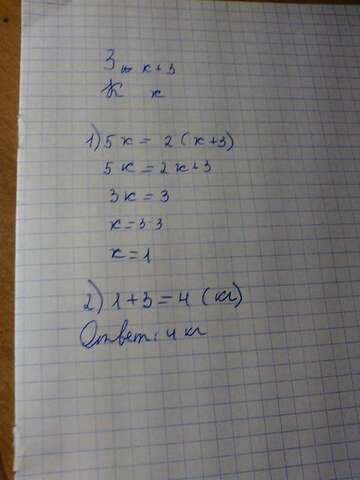 З x + 3
К x
1) 5x = 2(x+3)
5x = 2x+3
3x = 3
x = 3:3
x = 1
2) 1+3=4 (кг)
Ответ: 4 кг